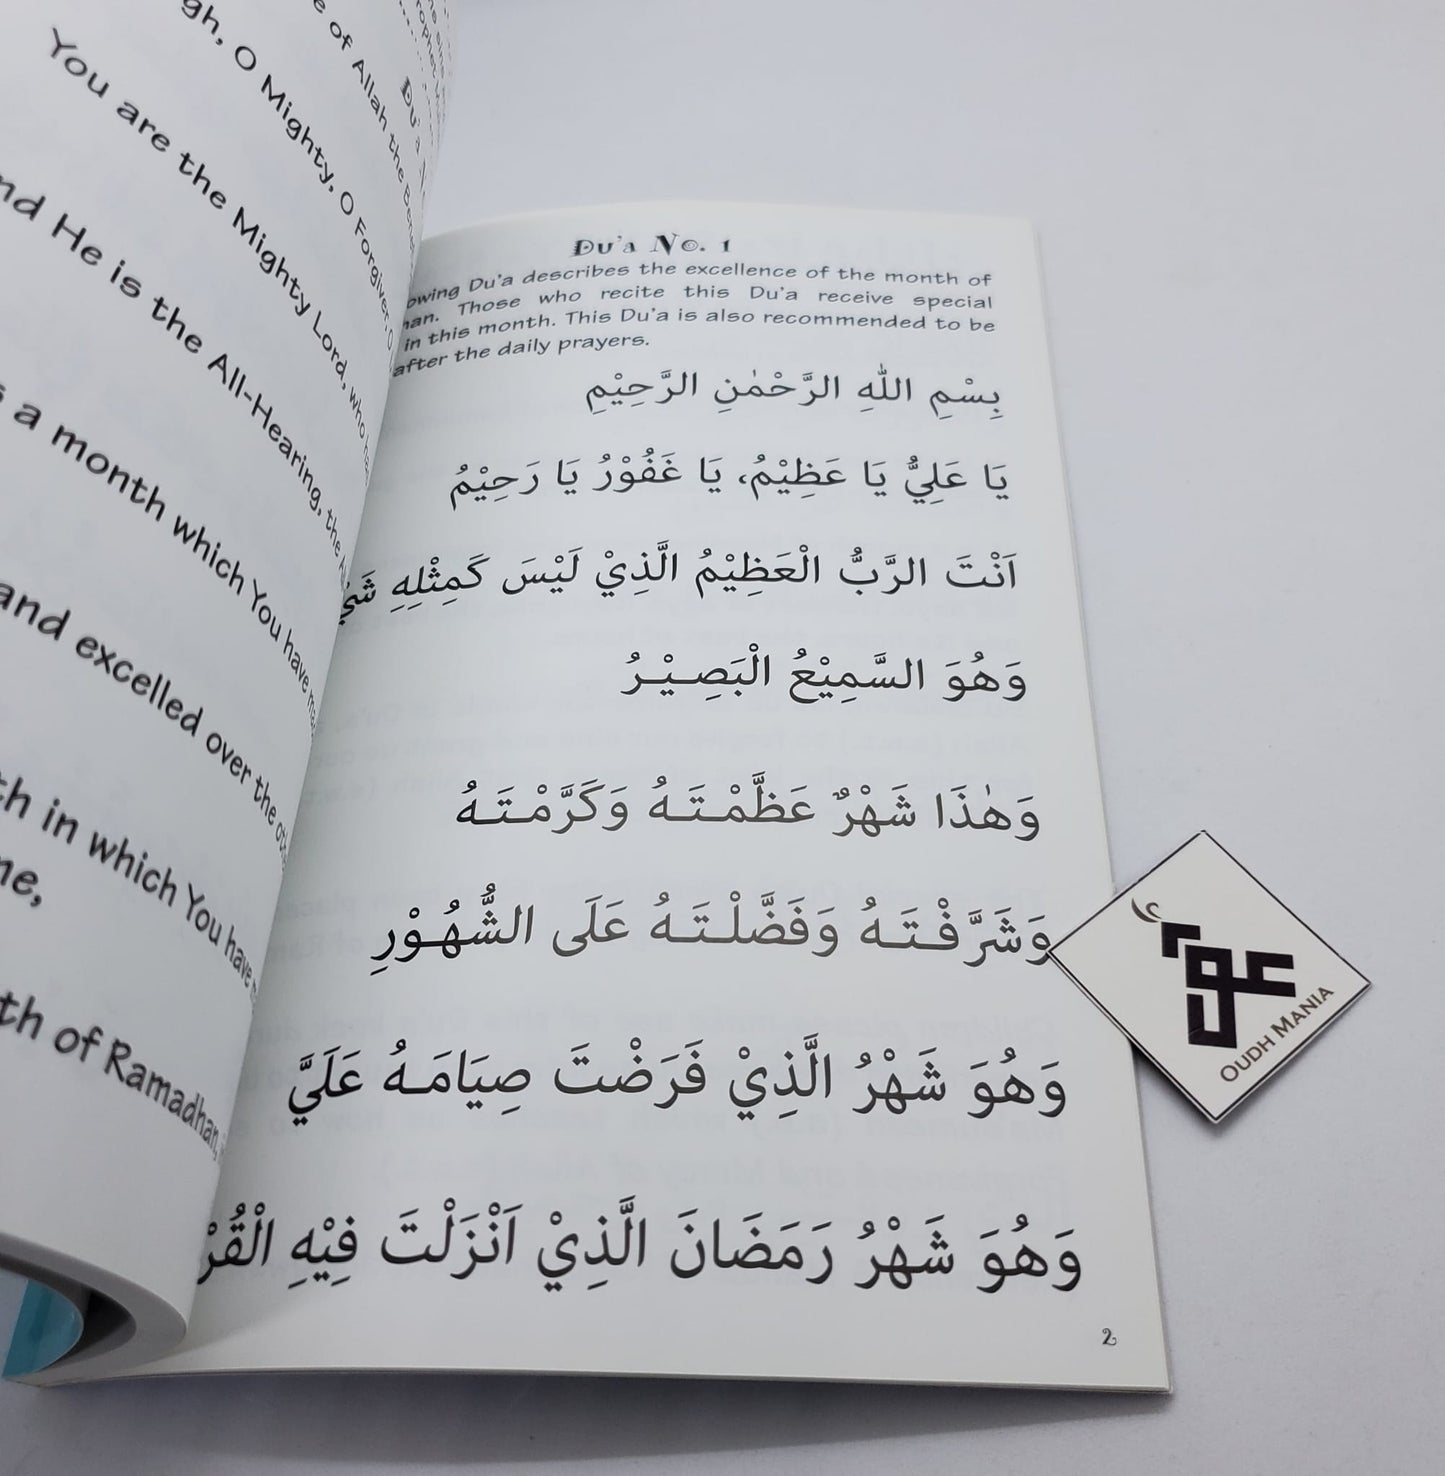 You are the Mighty Lord, who
O Mighty, O Forgiver, O
of Allah the
He is the All-Hearing, the
a month which You have
and excelled over the
in which You have
of Ramadhan,
Du'a No. 1
Du'a describes the excellence of the month of
Those who recite this Du'a receive special
in this month. This Du'a is also recommended to be
after the daily prayers.
بِسْمِ اللّٰهِ الرَّحْمٰنِ الرَّحِيْمِ
يَا عَلِيُّ يَا عَظِيْمُ، يَا غَفُوْرُ يَا رَحِيْمُ
اَنْتَ الرَّبُّ الْعَظِيْمُ الَّذِيْ لَيْسَ كَمِثْلِهِ
وَهُوَ السَّمِيْعُ الْبَصِيْرُ
وَهٰذَا شَهْرٌ عَظَّمْتَهُ وَكَرَّمْتَهُ
وَشَرَّفْتَهُ وَفَضَّلْتَهُ عَلَى الشُّهُوْرِ
وَهُوَ شَهْرُ الَّذِيْ فَرَضْتَ صِيَامَهُ عَلَيَّ
وَهُوَ شَهْرُ رَمَضَانَ الَّذِيْ اَنْزَلْتَ فِيْهِ
2
عود
OUDH MANIA